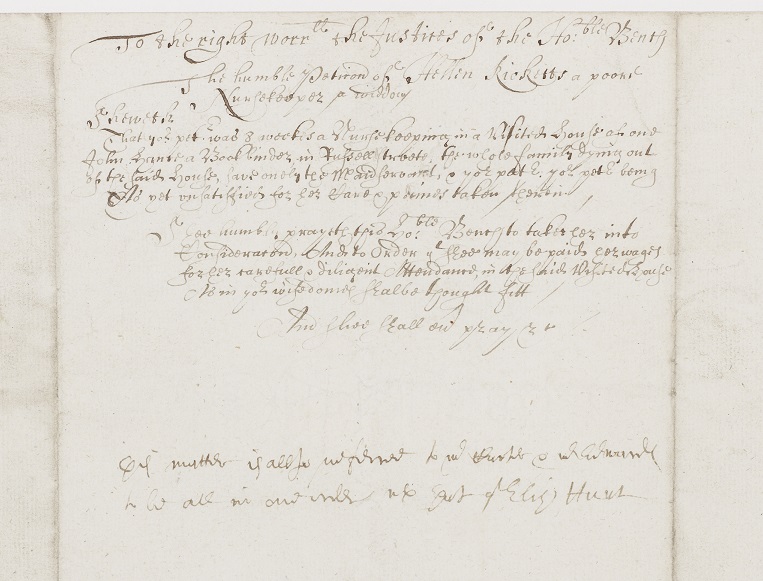 To the right worr:ll the Justices of the Ho:ble Bench
The humble Peticon of Hellen Ricketts a poore
Nursekeeper a widdow
Sheweth
That yor petr was 8 weekes a Nursekeeping in a Visited house of one
John a Bookbinder in Russell streete, the whole family dying out
of the said house, save onely the Maidservant, & yor petr: yor petr being
As yet unsatisfied for her Care & paines taken therein
Shee humbly prayeth this Ho:ble Bench to take her into
Consideracon, And to Order yt shee may be paid her wages
for her carefull & diligent Attendance in the said Visited house
As in yor wisedomes shalbe thought fitt
And shee shall ever pray &c
This matter is allso referred to mr & mr
to be all in one order of Eliz Hunt